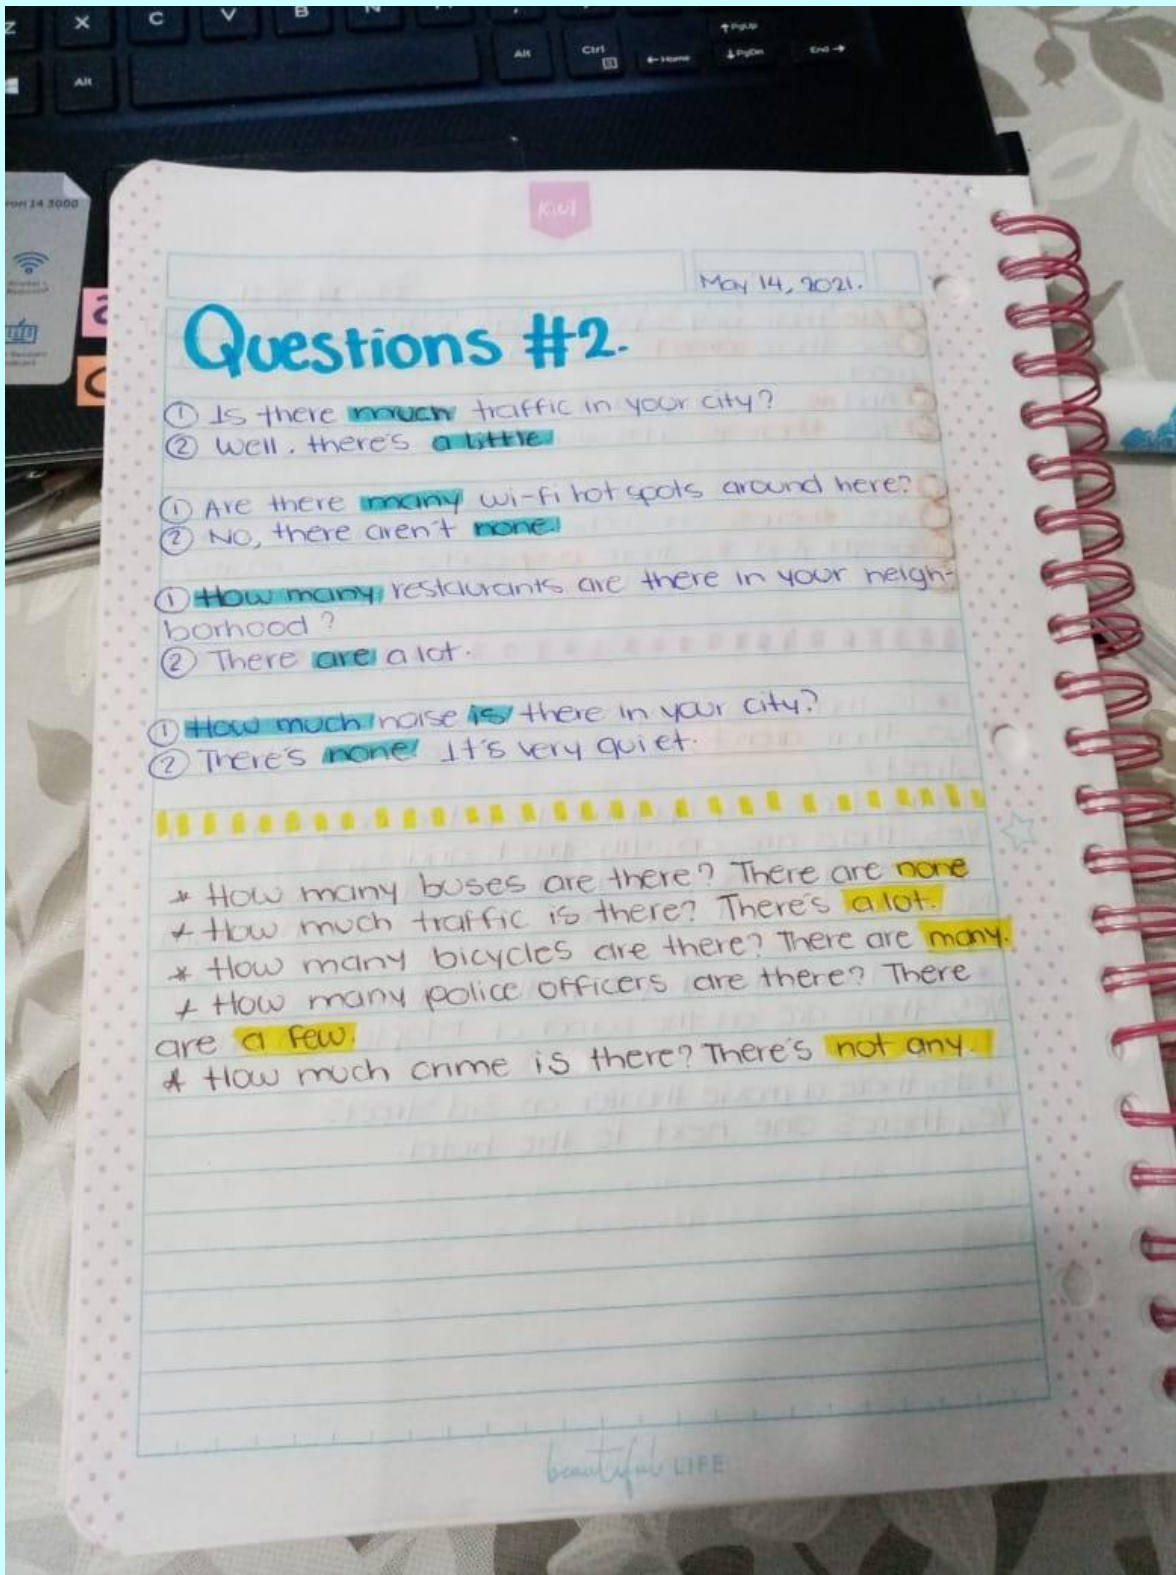 Z X C V B N
Alt Alt Ctrl ← Home ↑ PgUp ↓ PgDn End →
14 3000
Kiwi
May 14, 2021.
Questions #2.
① Is there much traffic in your city?
② Well, there's a little
① Are there many wi-fi hot spots around here?
② No, there aren't none.
① How many restaurants are there in your neigh-
borhood?
② There are a lot.
① How much noise is there in your city?
② There's none. It's very quiet.
* How many buses are there? There are none
* How much traffic is there? There's a lot.
* How many bicycles are there? There are many.
* How many police officers are there? There
are a few.
* How much crime is there? There's not any.
beautiful LIFE